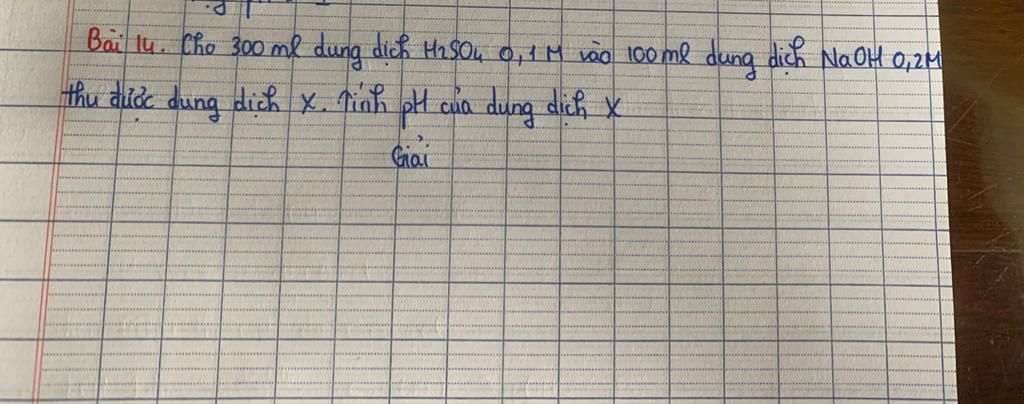 Bài 14. Cho 300ml dung dịch H₂SO₄ 0,1M vào 100ml dung dịch NaOH 0,2M
thu được dung dịch X. Tính pH của dung dịch X
Giải